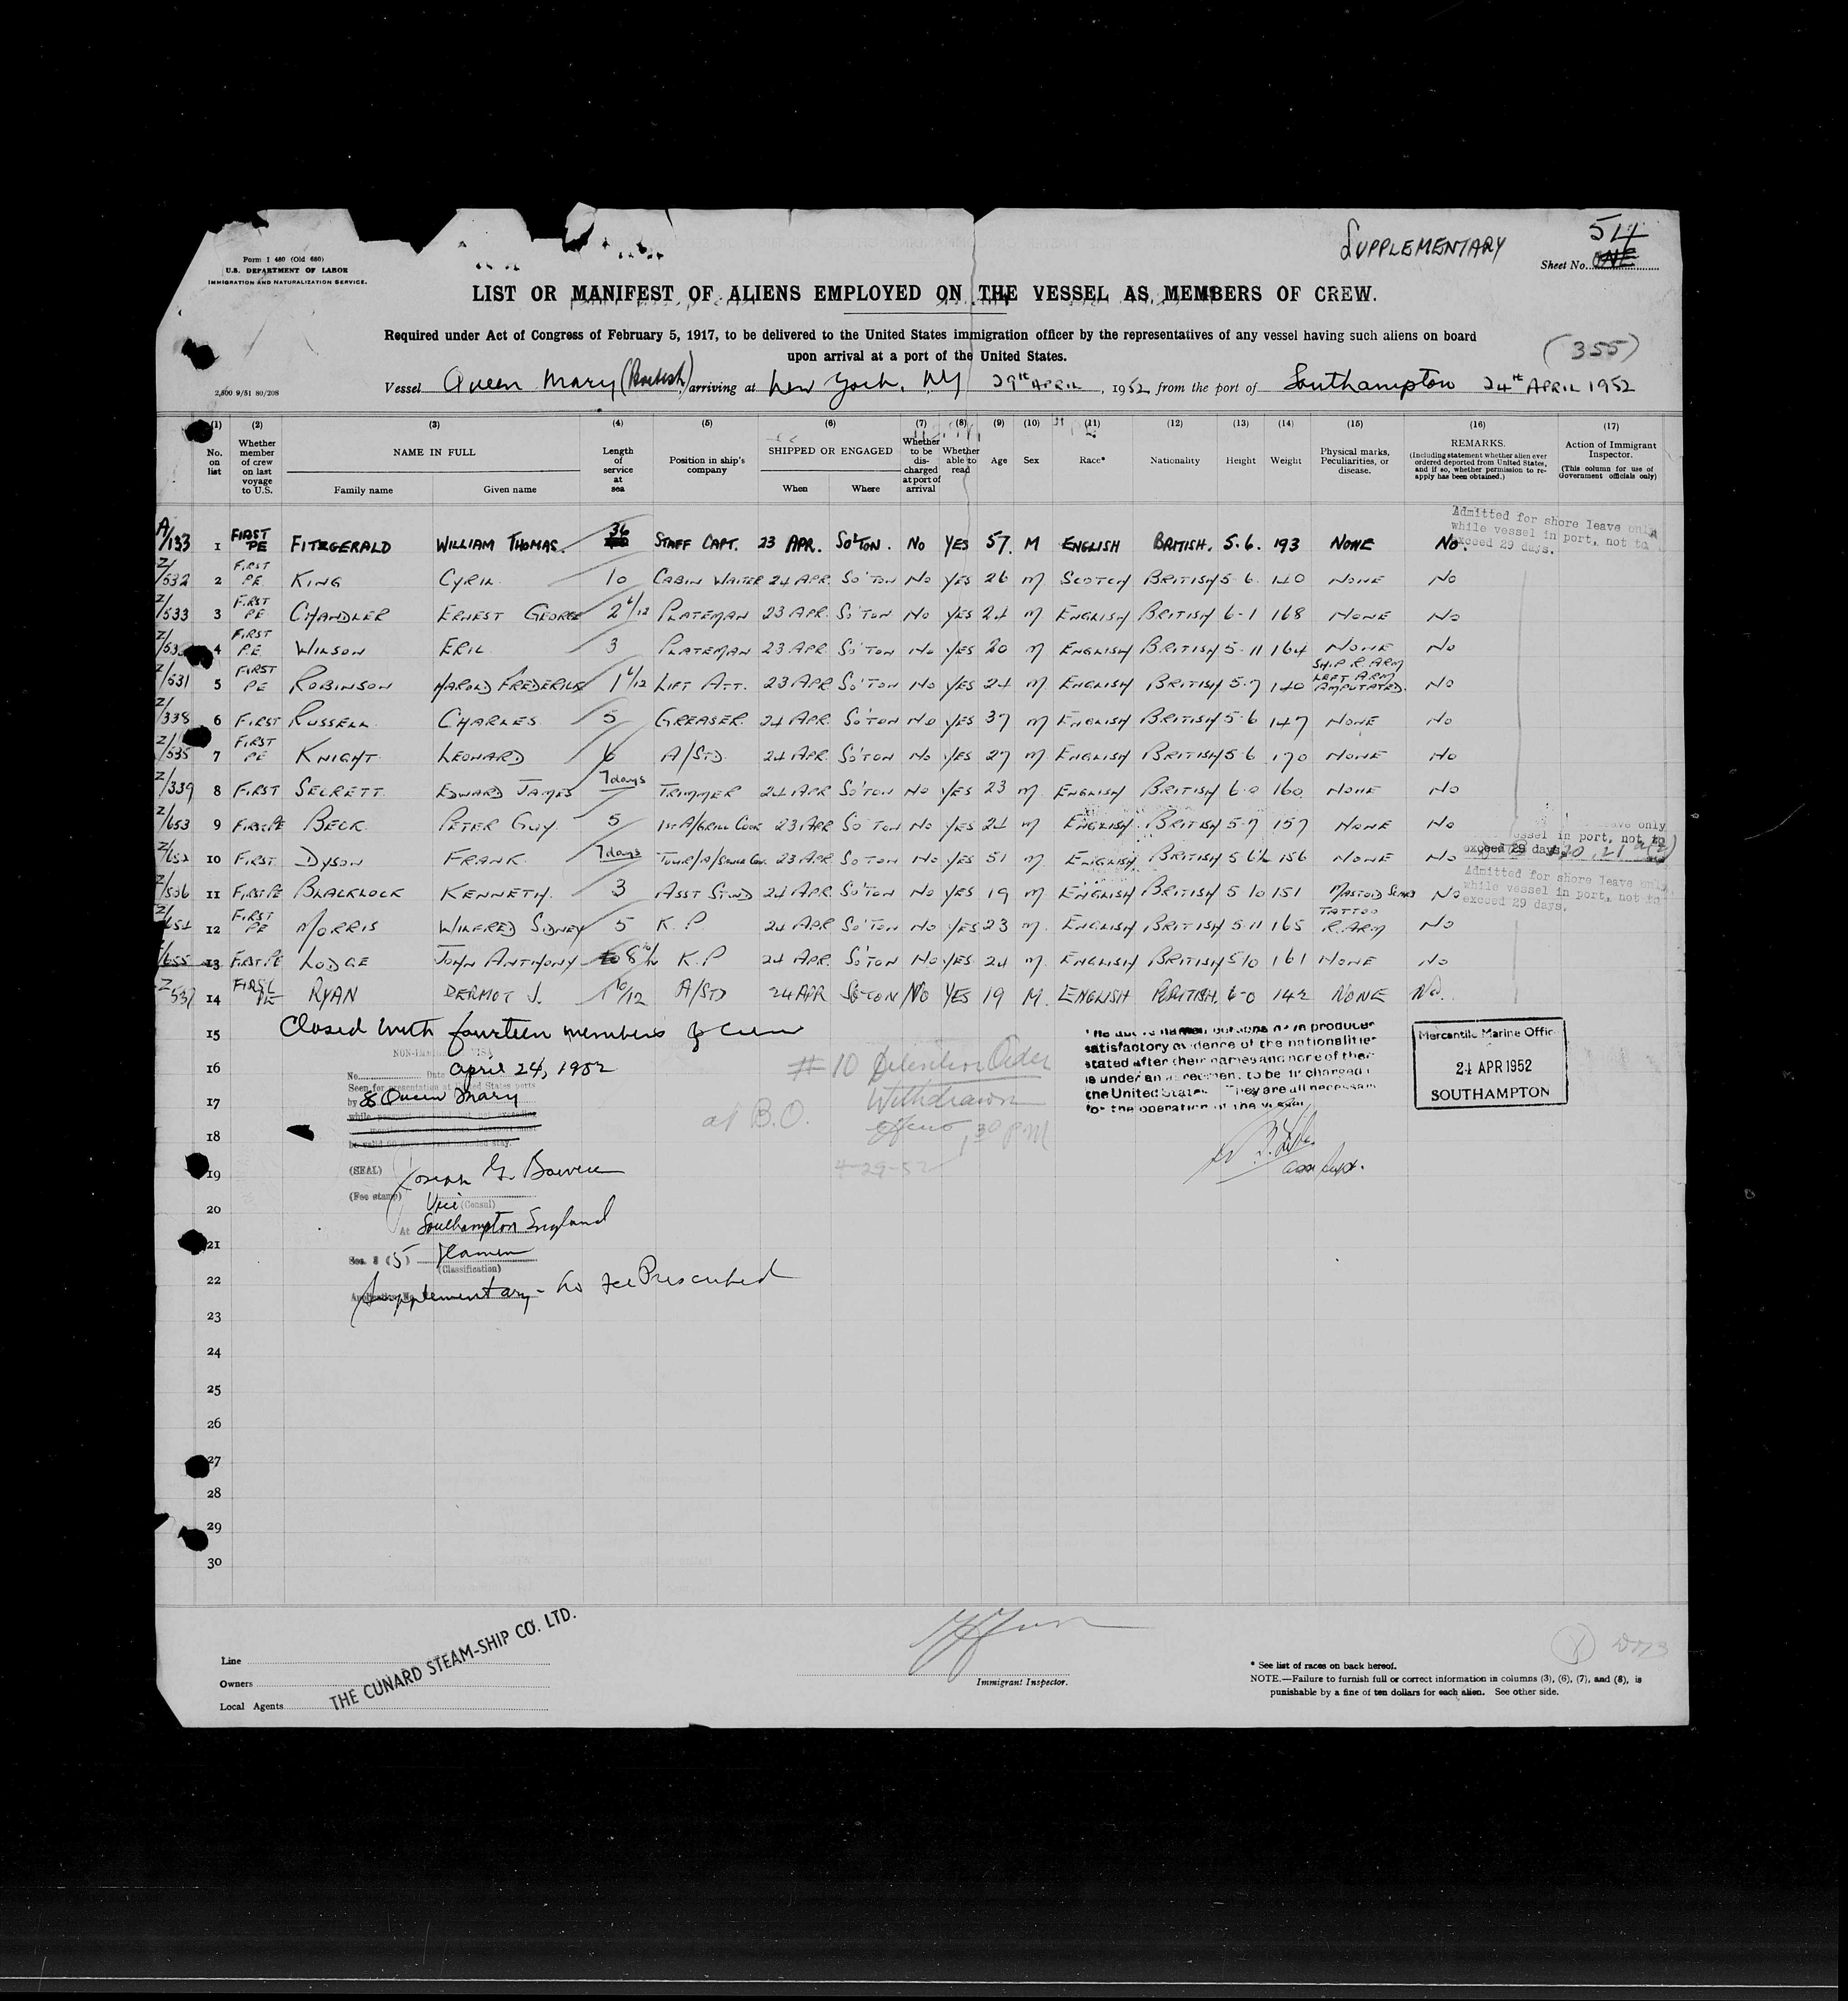 SUPPLEMENTARY
54
Form I 480 (Old 680)
U.S. DEPARTMENT OF LABOR
IMMIGRATION AND NATURALIZATION SERVICE.
Sheet No. ONE
LIST OR MANIFEST OF ALIENS EMPLOYED ON THE VESSEL AS MEMBERS OF CREW.
Required under Act of Congress of February 5, 1917, to be delivered to the United States immigration officer by the representatives of any vessel having such aliens on board
upon arrival at a port of the United States.
(355)
2,500 9/51 80/208
Vessel Queen Mary (British) arriving at New York, NY 29th APRIL, 1952 from the port of Southampton 24th APRIL 1952
(1) (2) (3) (4) (5) (6) (7) (8) (9) (10) (11) (12) (13) (14) (15) (16) (17)
No. on list
Whether member of crew on last voyage to U.S.
NAME IN FULL
Family name
Given name
Length of service at sea
Position in ship's company
SHIPPED OR ENGAGED
When
Where
Whether to be discharged at port of arrival
Whether able to read
Age
Sex
Race*
Nationality
Height
Weight
Physical marks, Peculiarities, or disease.
REMARKS.
(Including statement whether alien ever ordered deported from United States, and if so, whether permission to reapply has been obtained.)
Action of Immigrant Inspector.
(This column for use of Government officials only)
Admitted for shore leave only
while vessel in port, not to
exceed 29 days.
A/133 1 FIRST PE FITZGERALD WILLIAM THOMAS. 36 STAFF CAPT. 23 APR. SO'TON. NO YES 57. M ENGLISH BRITISH. 5.6. 193 NONE NO.
Z/532 2 FIRST PE. KING CYRIL 10 CABIN WAITER 24 APR. SO'TON NO YES 26 M SCOTCH BRITISH 5-6 140 NONE NO
Z/533 3 FIRST PE CHANDLER ERNEST GEORGE 2 6/12 PLATEMAN 23 APR. SO'TON NO YES 24 M ENGLISH BRITISH 6-1 168 NONE NO
4 FIRST P.E. WILSON ERIC 3 PLATEMAN 23 APR SO'TON NO YES 20 M ENGLISH BRITISH 5-11 164 NONE NO
Z/531 5 FIRST PE ROBINSON HAROLD FREDERICK 1 6/12 LIFT ATT. 23 APR SO'TON NO YES 24 M ENGLISH BRITISH 5-7 140 SHIP R. ARM LEFT ARM AMPUTATED. NO
Z/338 6 FIRST RUSSELL CHARLES 5 GREASER 24 APR. SO'TON NO YES 37 M ENGLISH BRITISH 5-6 147 NONE NO
Z/535 7 FIRST PE KNIGHT LEONARD 6 A/STD. 24 APR. SO'TON NO YES 27 M ENGLISH BRITISH 5-6 170 NONE NO
Z/339 8 FIRST SECRETT EDWARD JAMES 7 days TRIMMER 24 APR SO'TON NO YES 23 M. ENGLISH BRITISH 6-0 160 NONE NO
Z/653 9 FIRST PE BECK. PETER GUY 5 1ST A/GRILL COOK 23 APR SO'TON NO YES 24 M ENGLISH BRITISH 5-7 157 NONE NO
10 FIRST DYSON FRANK. 7 days 23 APR. SO'TON NO YES 51 M ENGLISH BRITISH 5 6½ 156 NONE NO
leave only
vessel in port, not to
exceed 29 days.
Z/536 11 FIRST PE BLACKLOCK KENNETH. 3 ASST STWD 24 APR SO'TON NO YES 19 M ENGLISH BRITISH 5 10 151 MASTOID SCARS NO
Admitted for shore leave only
while vessel in port, not to
exceed 29 days.
12 FIRST PE MORRIS WILFRED SIDNEY 5 K.P. 24 APR SO'TON NO YES 23 M. ENGLISH BRITISH 5.11 165 TATTOO R. ARM NO
/655 13 FIRST PE LODGE JOHN ANTHONY 8 10/12 K.P 24 APR. SO'TON NO YES 24 M. ENGLISH BRITISH 5 10 161 NONE NO
Z/537 14 FIRST PE RYAN DERMOT J. 1 10/12 A/STD 24 APR SO'TON NO YES 19 M. ENGLISH BRITISH. 6-0 142 NONE NO.
15 Closed with fourteen members of crew
The above named persons have produced
satisfactory evidence of the nationalities
stated after their names and none of them
is under an agreement to be discharged in
the United States. They are all necessary
for the operation of the vessel
Mercantile Marine Office
24 APR 1952
SOUTHAMPTON
NON-IMMIGRANT VISA
16 No. Date April 24, 1952
Seen for presentation at United States ports
17 by SS Queen Mary
#10 Detention Order
Withdrawn
at B.O.
1.30 PM
4-29-52
18
19 (SEAL) Joseph G. Bowen
(Fee stamp) Vice (Consul)
20 At Southampton England
21 Sec. 3 (5) Seamen
(Classification)
22 Supplementary - No Fee Prescribed
Asst Supt.
23
24
25
26
27
28
29
30
Line
Owners
Local Agents
THE CUNARD STEAM-SHIP CO. LTD.
Immigrant Inspector.
* See list of races on back hereof.
NOTE.—Failure to furnish full or correct information in columns (3), (6), (7), and (8), is
punishable by a fine of ten dollars for each alien. See other side.